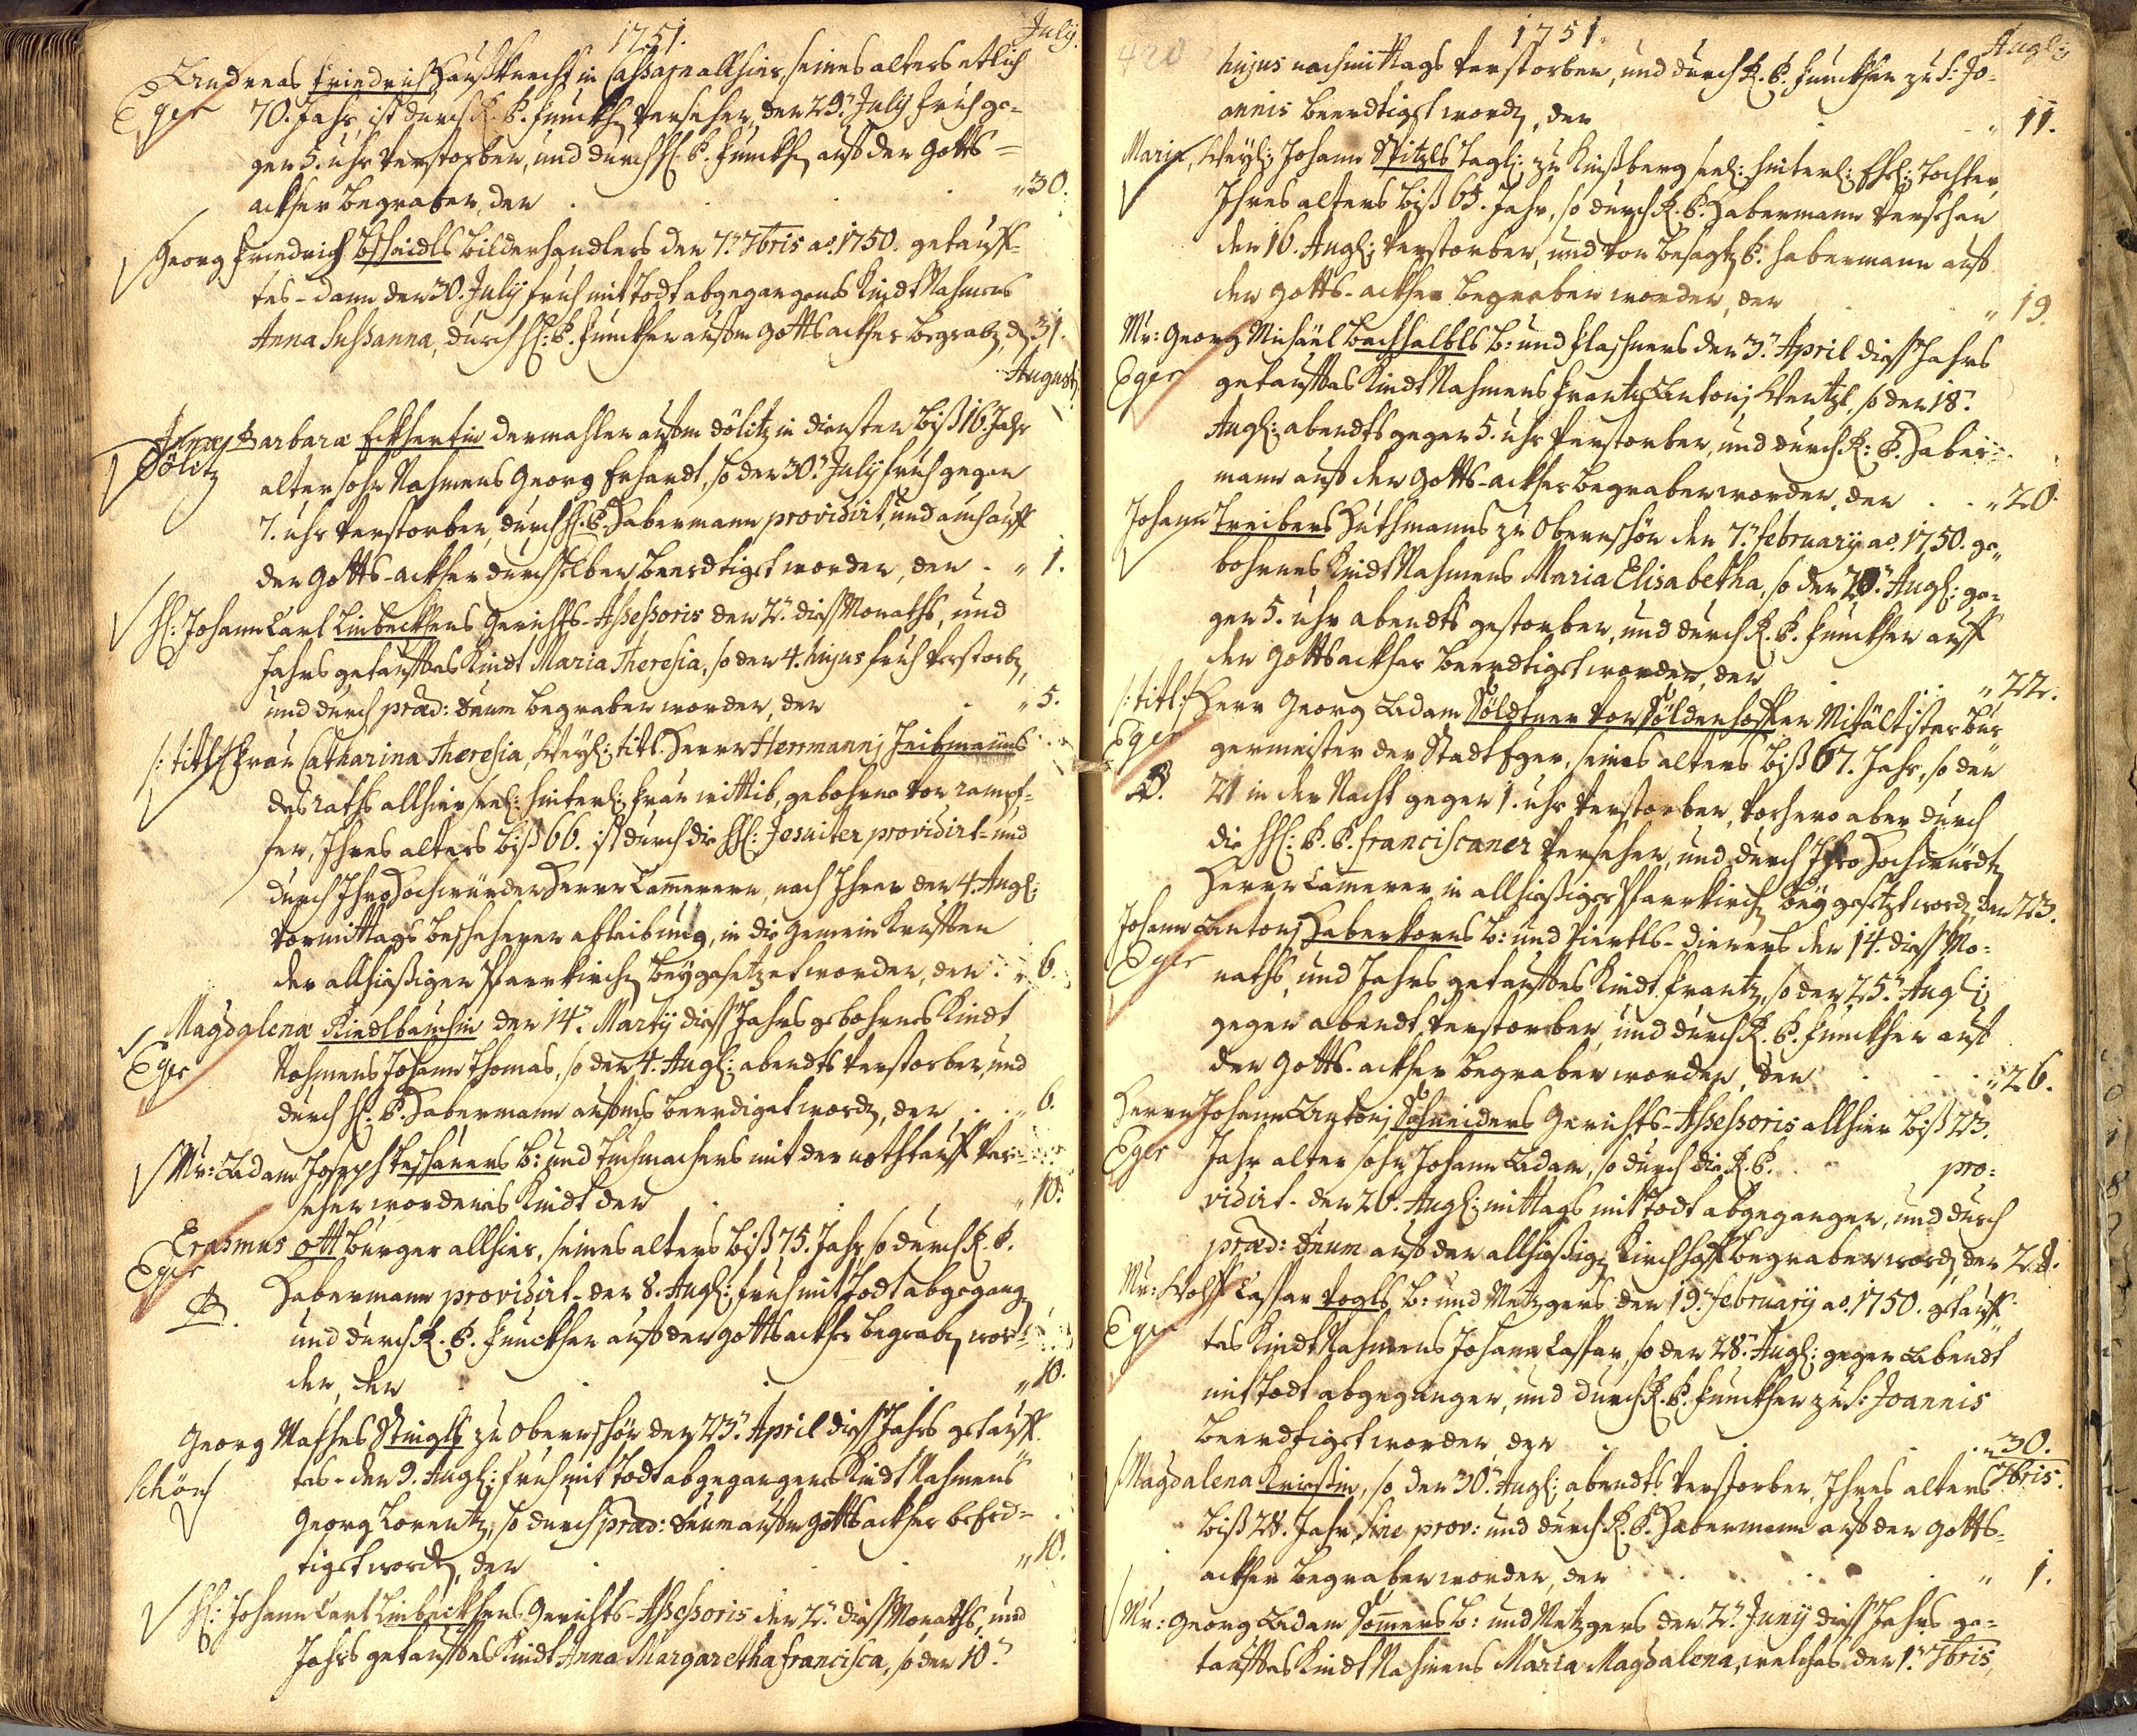 1751.
July.
Andreas Friedrich Haußknecht in Casarn allhier, seines alters etlich
Eger
70. Jahr, ist durch H. P. Funckh versehen, den 29. July fruh ge=
gen 5. uhr verstorben, und durch H. P. Funckh auf den Gotts=
ackher begraben, den . . " 30.
Georg Friedrich Bscheidls Bilderhandlers den 7. 7bris ao. 1750. getauff=
tes - dann den 30. July fruh mit Todt abgegangenes Kindt Nahmens
Anna Susanna, durch H: P. Funckher aufm Gottsackher begrab, d. 31.
Augusti.
Annae Barbarae Eckhertin dermahlen aufm Dölitz in diensten biß 16. Jahr
Dölitz
alter sohn Nahmens Georg Erhardt, so den 30. July fruh gegen
7. uhr verstorben, durch H. P. Habermann providirt, und auch auff
den Gotts-ackher durch selben beerdtiget worden, den . " 1.
H: Johann Carl Linbeckhens Gerichts-Assessoris den 2. dieß Monaths, und
Jahrs getaufftes Kindt Maria Theresia, so den 4. hujus fruh verstorb,
und durch praed: Deum begraben worden, den . " 5.
/: titl :/ Frau Catharina Theresia, Weyl: titl. Herrn Hermannj Zeitmeüns
des raths allhier seel: hinterl: frau wittib, gebohrne von rampf=
fen, Ihres alters biß 66. ist durch die HH: Jesuiter providirt - und
durch Ihro Hochwürden Herrn Cammerern, nach Ihrer den 4. Augl:
vormittags beschehenen ableibung, in die Gemein Krufften
der allhießigen Pfarrkirch beygesetzet worden, den . " 6.
Magdalenae Riedlbauchin den 14. Martij dieß Jahrs gebohrnes Kindt
Eger
Nahmens Johann Thomas, so den 4. Augl: abendts verstorben, und
durch H: P. Habermann aufm beerdiget word, den . . " 6.
Mr: Adam Joseph Peshauers b: und Tuchmachers mit der nothtauff ver=
sehen wordenes Kindt den . . " 10.
Erasmus Ott burger allhier, seines alters biß 75. Jahr, so durch H. P.
Eger
Habermann providirt - den 8. Augl: fruh mit Todt abgegang
und durch H. P. Funckher auf den Gottsackher begrab wor=
den, den . . . " 10.
Georg Mathes Stingls zu Obernschön den 23. April dieß Jahrs getauff=
Schön
tes - den 9. Augl: fruh mit Todt abgegangenes Kindt Nahmens
Georg Lorentz, so durch praed: Deum aufm Gottsackher beerd=
tiget word, den . . " 10.
H: Johann Carl Linbeckhens Gerichts-Assessoris den 2. dieß Monaths, und
Jahrs getaufftes Kindt Anna Margaretha Francisca, so den 10.
420
1751.
Augl:
hujus nachmittags verstorben, und durch H. P. Funckher zu S: Jo=
annis beerdtiget word, den . " 11.
Maria, Weyl: Johann Spitzls Tagl: zu Kinßberg seel: hinterl: Ehel: Tochter,
Ihres alters biß 65. Jahr, so durch H. P. Habermann versehen
den 16. Augl: verstorben, und von besagt P. Habermann auf
den Gotts-ackher begraben worden, den . " 19.
Mr: Georg Michäel Bachhalbls b: und Flaschners den 3. April dieß Jahrs
Eger
getaufftes Kindt Nahmens Frantz Antonj Wentzl, so den 18.
Augl: abendts gegen 5. uhr verstorben, und durch H: P. Haber=
mann auf den Gotts-ackher begraben worden, den . . " 20.
Johann Treibers Huthmanns zu Obernschön den 7. February ao. 1750. ge=
bohrnes Kindt Nahmens Maria Elisabetha, so den 20. Augl: ge=
gen 5. uhr abendts gestorben, und durch H. P. Funckher auff
den Gottsackher beerdtiget worden, den . . " 22.
/: titl :/ Herr Georg Adam Söldtner von Söldenhoffen Mitältister bur=
Eger
germeister der Stadt Eger, seines alters biß 67. Jahr, so den
21 in der Nacht gegen 1. uhr verstorben, vorhero aber durch
die HH: P. P. Franciscaner versehen, und durch Ihro Hochwürdt
Herrn Cammerer in allhießiger Pfarrkirch beygesetzt word, den 23.
Johann Antonj Haberkorns b: und Viertls-dieners den 14. dieß Mo=
Eger
naths, und Jahrs getaufftes Kindt Frantz, so den 25. Augl:
gegen abendt verstorben, und durch H. P. Funckher auf
den Gotts-ackher begraben worden, den . " 26.
Herrn Johann Antonj Schneiders Gerichts-Assessoris allhier biß 23.
Eger
Jahr alter sohn Johann Adam, so durch die H. P. . . pro=
vidirt - den 26. Augl: mittags mit todt abgegangen, und durch
praed: Deum auf den allhießig Kirchhoff begraben word, den 28.
Mr: Wolff Caspar Vogls b: und Metzgers den 19. February ao. 1750. getauff=
Eger
tes Kindt Nahmens Johann Caspar, so den 28. Augl: gegen Abendt
mit todt abgegangen, und durch H. P. Funckher zu S: Joannis
beerdtiget worden, den . . " 30.
7bris.
Magdalena Kneißin, so den 30. Augl: abendts verstorben, Ihres alters
biß 28. Jahr, sine prov: und durch H. P. Habermann auf den Gotts=
ackher begraben worden, den . . " 1.
Mr: Georg Adam Sommers b: und Metzgers den 2. Juny dieß Jahrs ge=
taufftes Kindt Nahmens Maria Magdalena, welches den 1. 7bris,